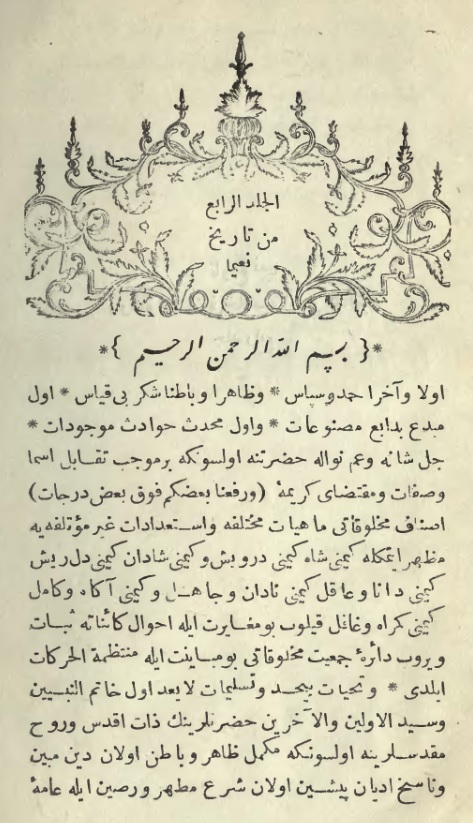 الجلد الرابع
من تاريخ
نعيما
*{ بسم الله الرحمن الرحيم }*
اولا وآخرا حمد وسپاس * وظاهرا وباطنا شكر بى قياس * اول
مبدع بدايع مصنوعات * واول محدث حوادث موجودات *
جل شانه وعم نواله حضرتنه اولسونكه برموجب تقابل اسما
وصفات ومقتضاى كريمهٔ (ورفعنا بعضكم فوق بعض درجات)
اصناف مخلوقاتى ماهيات مختلفه واستعدادات غير مؤتلفه يه
مظهر ايتمكله كيمنى شاه كيمنى درويش وكيمنى شادان كيمنى دل ريش
كيمنى دانا وعاقل كيمنى نادان وجاهل وكيمنى آكاه وكامل
كيمنى كمراه وغافل قيلوب بومغايرت ايله احوال كائناته ثبات
ويروب دائرهٔ جمعيت مخلوقاتى بومباينت ايله منتظمة الحركات
ايلدى * وتحيات بيحد وتسليمات لايعد اول خاتم النبيين
وسيد الاولين والآخرين حضرتلرينك ذات اقدس وروح
مقدسلرينه اولسونكه مكمل ظاهر وباطن اولان دين مبين
وناسخ اديان پيشين اولان شرع مطهر ورصين ايله عامهٔ